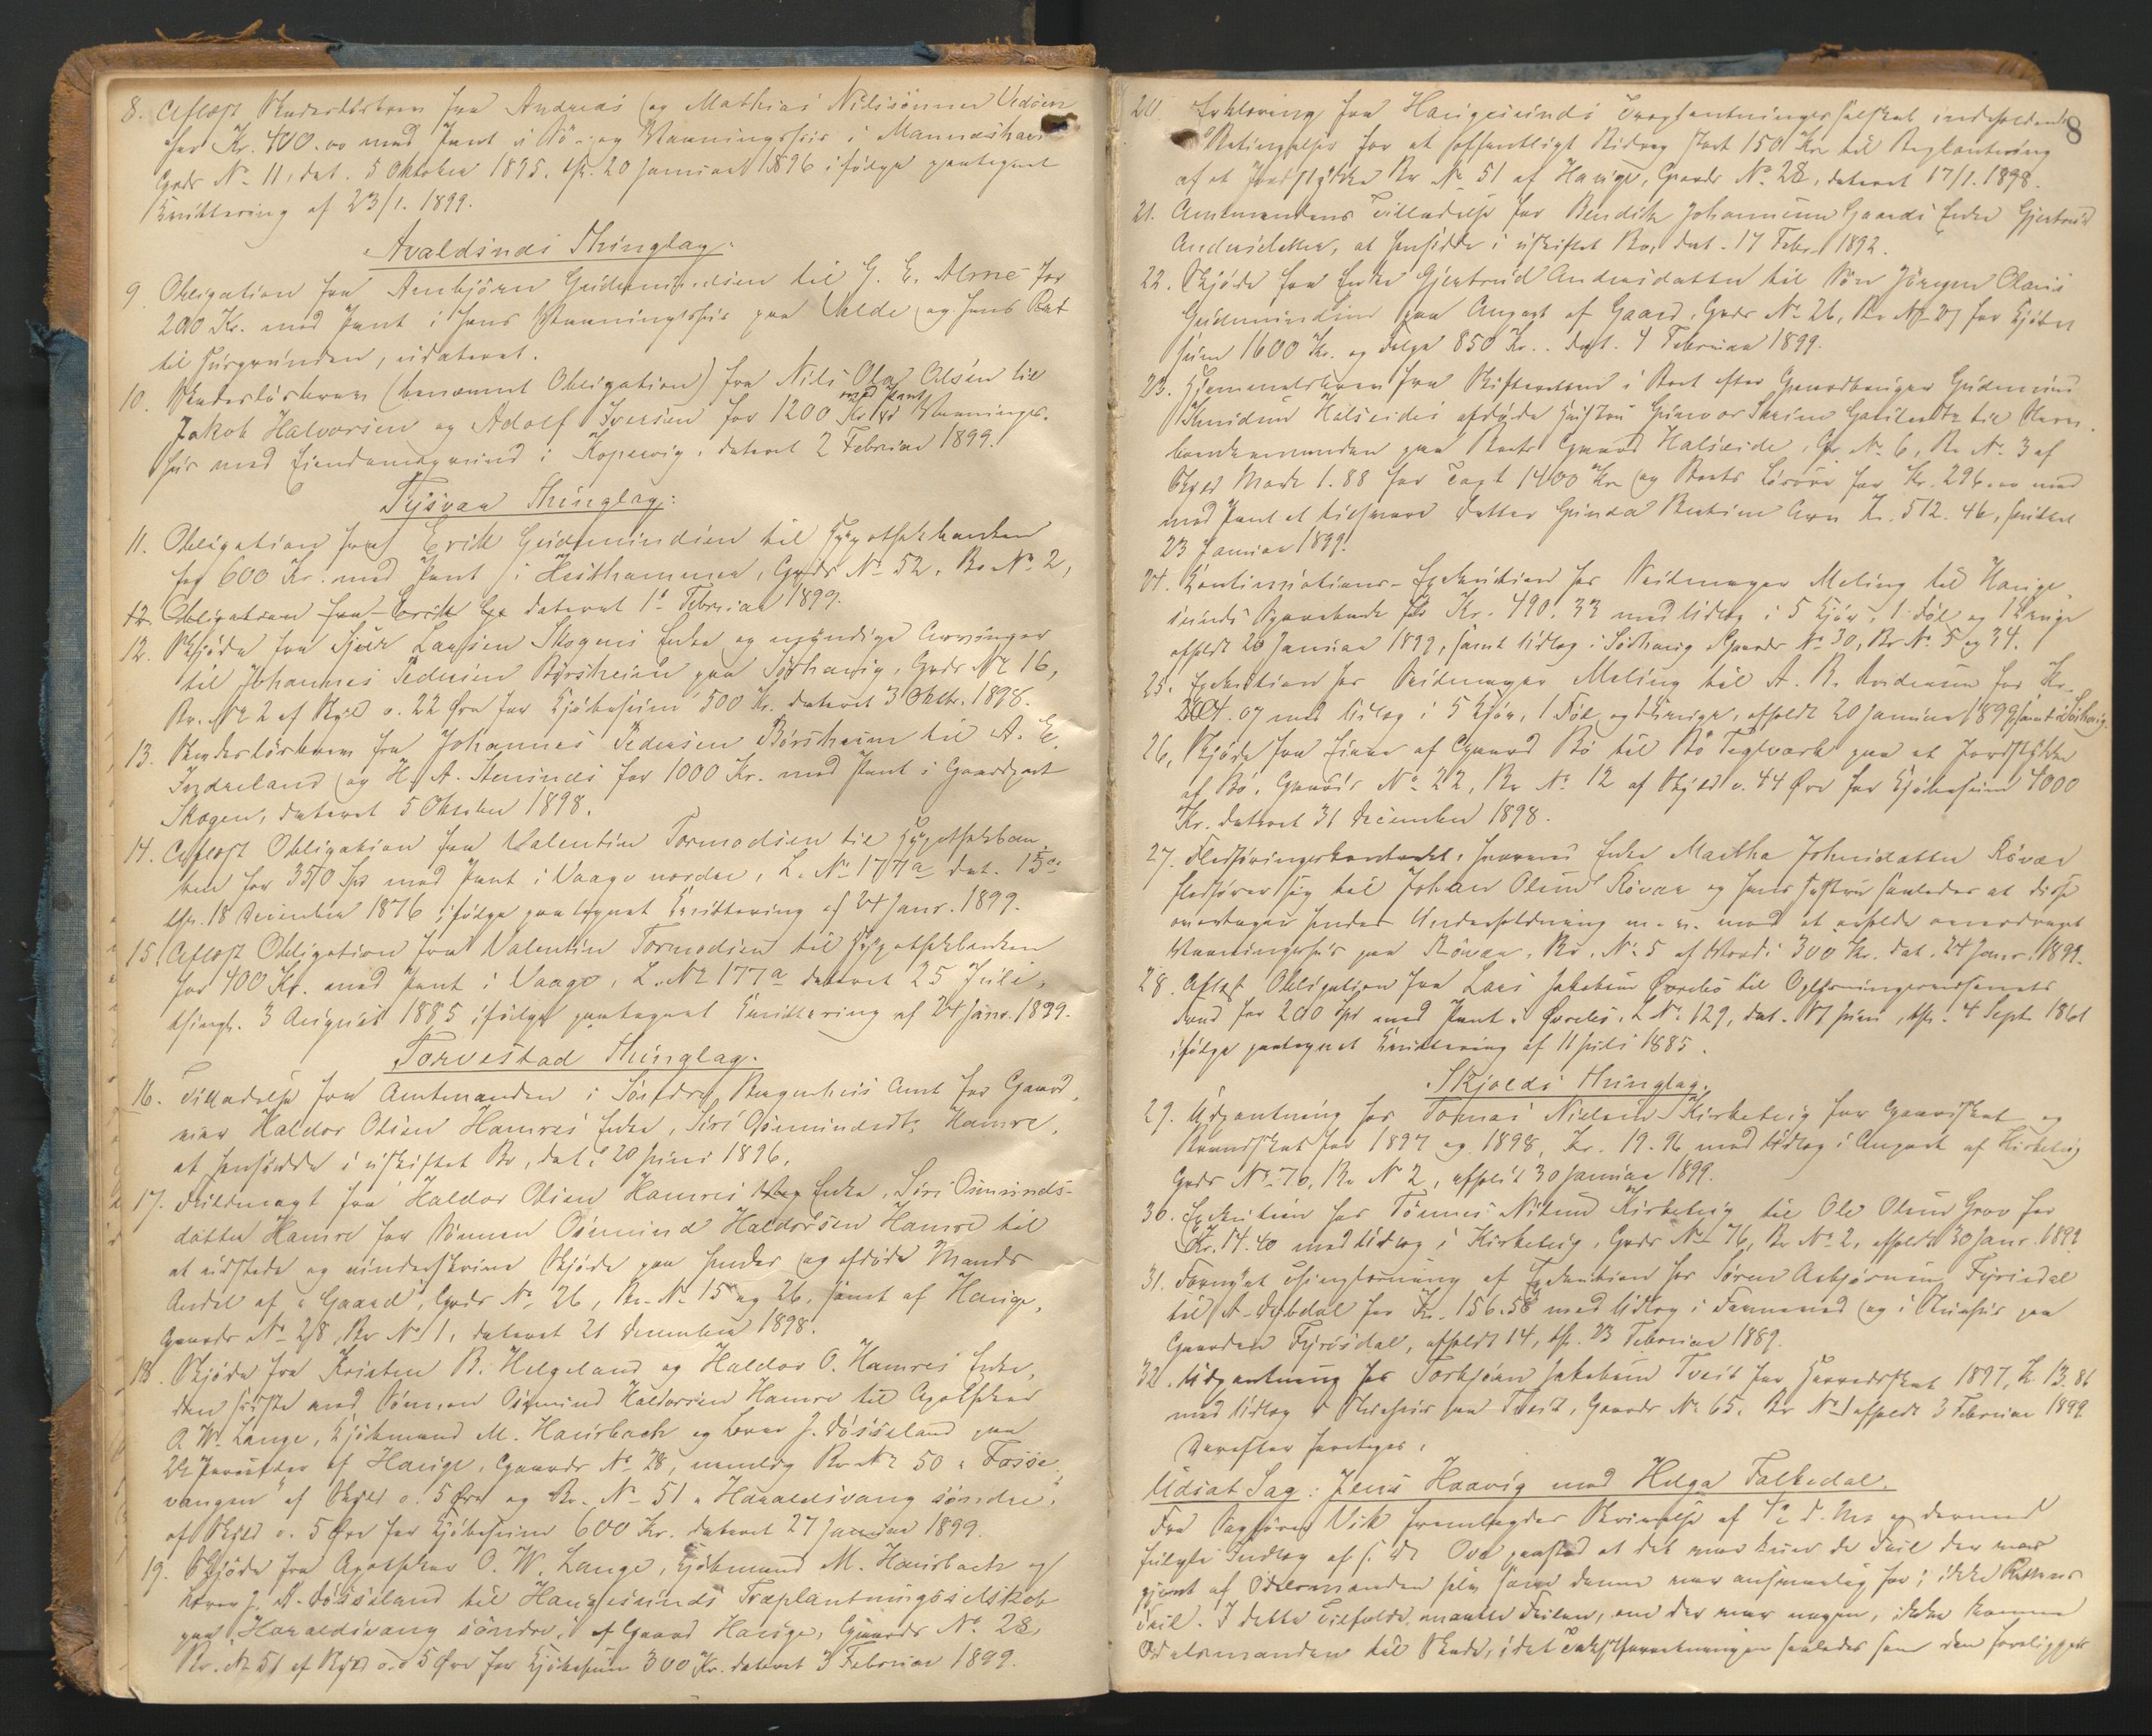 8. Aflæst Skadesløsbrev fra Andreas og Mathias Nilssønner Vedøen
for Kr. 400.00 med Pant i Sø- og Vaaningshus i
Gnds No 11, dat. 5 Oktober 1895, thl. 20 Januar 1896 ifølge paategnet
Kvittering af 23/1. 1899.
Avaldsnds Thinglag:
9. Obligation fra Arnbjørn Gudmundsen til G. E. Alme for
200 Kr. med Pant i hans Vaaningshus paa Velde og hans Ret
til Husgrunden, udateret.
10. Skadesløsbrev (benævnt Obligation) fra Nils Ola Olsen til
Jakob Halvorsen og Adolf Iversen for 1200 Kr med Pant Vaanings-
hus med Eiendomsgrund i Kopervig, dateret 2 Februar 1899.
Tysvær Thinglag:
11. Obligation fra Erik Gudmundsen til Hypothekbanken
for 600 Kr. med Pant i Hesthammer, Gnds No 52, Br No 2,
12. Obligation fra Erik Gu dateret 1 Februar 1899.
12. Skjøde fra Sjur Larssen Skogens Enke og myndige Arvinger
til Johannes Pedersen Børsheim paa Sørhavig, Gnds No 16,
Br. No 2 af Skyld o. 22 Øre for Kjøbesum 500 Kr. dateret 3 Oktbr. 1898.
13. Skadesløsbrev fra Johannes Pedersen Børsheim til A. E.
Inderland og H. A. Stensnæs for 1000 Kr. med Pant i Gaardpart
Skogen, dateret 5 Oktober 1898.
14. Aflæst Obligation fra Valentin Tormodsen til Hypothekban-
ken for 350 Spd med Pant i Vaage nordre, L. No 177a dat. 15de
thl. 18 December 1876 ifølge paategnet Kvittering af 24 Janr. 1899.
15. Aflæst Obligation fra Valentin Tormodsen til Hypothekbanken
for 400 Kr. med Pant i Vaage, L. No 177a dateret 25 Juli,
thingl. 3 August 1885 ifølge paategnet Kvittering af 24 Janr. 1899.
Torvestad Thinglag:
16. Tilladelse fra Amtmanden i Søndre Bergenhus Amt for Gaard-
mand Haldor Olsen Hamres Enke, Siri Osmundsdtr Hamre,
at hensidde i uskiftet Bo, dat. 20 Juni 1896.
17. Fuldmagt fra Haldor Olsen Hamres Enke, Siri Osmunds-
datter Hamre for Sønnen Osmund Haldorsen Hamre til
at udstede og underskrive Skjøde paa hendes og afdøde Mands
Andel af "Gaard", Gnds No 26, Br. No 15 og 26, samt af Hauge,
Gaards No 28, Br No 1, dateret 21 December 1898.
18. Skjøde fra Kristen B. Helgeland og Haldor O. Hamres Enke,
den sidste ved Sønnen Osmund Haldorsen Hamre til Apotheker
O. W. Lange, Kjøbmand M. Hausbach og Lærer J. Døssland paa
2de Parceller af Hauge, Gaards No 28, nemlig Br No 50 "Fosse-
vangen" af Skyld o. 5 Øre og Br. No 51 "Haraldsvang søndre",
af Skyld o. 5 Øre for Kjøbesum 600 Kr. dateret 27 Januar 1899.
19. Skjøde fra Apotheker O. W. Lange, Kjøbmand M. Hausbach og
Lærer J. A. Døssland til Haugesunds Træplantningsselskab
paa "Haraldsvang søndre", af Gaard Hauge, Gaards No 28,
Br. No 51 af Skyld o. 5 Øre for Kjøbesum 300 Kr. dateret 3 Februar 1899.
8
20. Erklæring fra Haugesunds Træplantningsselskab indeholdende
Betingelser for et offentligt Bidrag stort 150 Kr til Beplantning
af et Jordstykke Br No 51 af Hauge, Gaards No 28, dateret 17/1. 1898.
21. Amtmandens Tilladelse for Bendik Johannesen Gaards Enke Gjertrud
Andersdatter, at hensidde i uskiftet Bo, dat. 17 Febr. 1892.
22. Skjøde fra Enke Gjertrud Andersdatter til Søn Jørgen Olaus
Gudmundsen paa Anpart af Gaard, Gnds No 26, Br No 27 for Kjøbe
sum 1600 Kr. og Følge 850 Kr. dat. 4 Februar 1899.
23. Hjemmelsbrev fra Skifteretten i Boet efter Gaardbruger Gudmund
Knudsen Halseides afdøde Hustru Gunvor Serine til Over-
formynderen paa Boets Gaard Halseide, Gr No 6, Br No 3 af
Skyld Mark 1.88 for Taxt 1400 Kr og Boets Løsøre for Kr. 296.00 med
med Pant at tilsvare Datter Gunda Bertine Arv Kr. 512.46, sluttet
23 Januar 1899.
24. Kontinuations-Exekution hos Veidmager Meling til Hauge-
sunds Sparebank for Kr. 490.33 med Udlæg i 5 Kjør, 1 Føl og 1 Kvige
afholdt 20 Januar 1899, samt Udlæg i Sørhaug Gaards No 30, Br No 5 og 34.
25. Exekution hos Veidmager Meling til A. B. Andersen for Kr.
.07 med Udlæg i 5 Kjør, 1 Føl og 1 Kvige, afholdt 20 Januar 1899 samt i Sørhaug.
26. Skjøde fra Eiere af Gaard Bø til Bø Teglværk paa et Jordstykke
af Bø, Gaards No 22, Br No 12 af Skyld o. 44 Øre for Kjøbesum 4000
Kr. dateret 31 December 1898.
27. Fledføringskontrakt, hvorved Enke Martha Johnsdatter Røvær
fledfører sig til Johan Olsen Røvær og hans Hustru saaledes at disse
overtager hendes Underholdning m. v. mod at erholde overdraget
Vaaningshus paa Røvær, Br. No 5 af Værdi 300 Kr. dat. 24 Janr. 1899.
28. Aflæst Obligation fra Lars Jakobsen Øvrebø til Oplysningsvæsenets
Fond for 200 Spd med Pant i Øvrebø, L No 129, dat. 17 Juni, thl. 4 Sept 1861
ifølge paategnet Kvittering af 11 Juli 1885.
Skjolds Thinglag:
29. Udpantning hos Tomas Nielsen Kirketeig for Gaardskat og
for 1897 og 1898, Kr. 19.96 med Udlæg i Anpart af Kirketeig
Gnds No 76, Br No 2, afholdt 30 Januar 1899.
30. Exekution hos Tønnes Nilsen Kirketeig til Ole Olsen Grov for
Kr. 14.40 med Udlæg i Kirketeig, Gnds No 76, Br No 2, afholdt 30 Janr. 1899
31. Fornyet Thinglæsning af Exekution hos Søren Asbjørnsen Fyrisdal
til A. for Kr. 156.58 med Udlæg i og i Stuehus paa
Gaarden Fyrisdal, afholdt 14, thl. 23 Februar 1889.
32. Udpantning hos Torbjørn Jakobsen Tveit for Herredsskat 1897, Kr. 13.86
med Udlæg i Stuehus paa Tveit, Gaards No 65, Br No 1 afholdt 3 Februar 1899
Derefter foretoges:
Udsat Sag: Jens Haavig mod Helga Falkedal.
Fra Sagfører Vik fremlagdes Skrivelse af d. Ms og dermed
fulgte Indlæg af s. D. Ove paastod at det var den Feil der var
gjort af Odelsmanden selv, som denne var ansvarlig for; ikke Rettens
Feil. I dette Tilfælde maatte Feilen, om der var nogen, ikke komme
Odelsmanden til Skade, idet Taxtforretningen saaledes som den foreligger